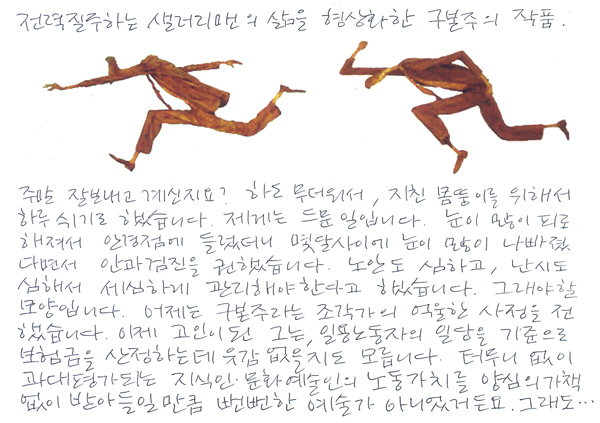 전력질주하는 샐러리맨의 삶을 형상화한 구본주의 작품.
주말 잘보내고 계신지요? 하도 무더워서, 지친 몸뚱이를 위해서
하루 쉬기로 했습니다. 제게는 드문 일입니다. 눈이 많이 피로
해져서 안경점에 들렀더니 몇달사이에 눈이 많이 나빠졌
다면서 안과검진을 권했습니다. 노안도 심하고, 난시도
심해서 세심하게 관리해야한다고 했습니다. 그래야할
모양입니다. 어제는 구본주라는 조각가의 억울한 사정을 전
했습니다. 이제 고인이 된 그는, 일용노동자의 일당을 기준으로
보험금을 산정하는데 유감 없을지도 모릅니다. 터무니 없이
과대평가되는 지식인·문화예술인의 노동가치를 양심의 가책
없이 받아들일 만큼 뻔뻔한 예술가 아니었거든요. 그래도…